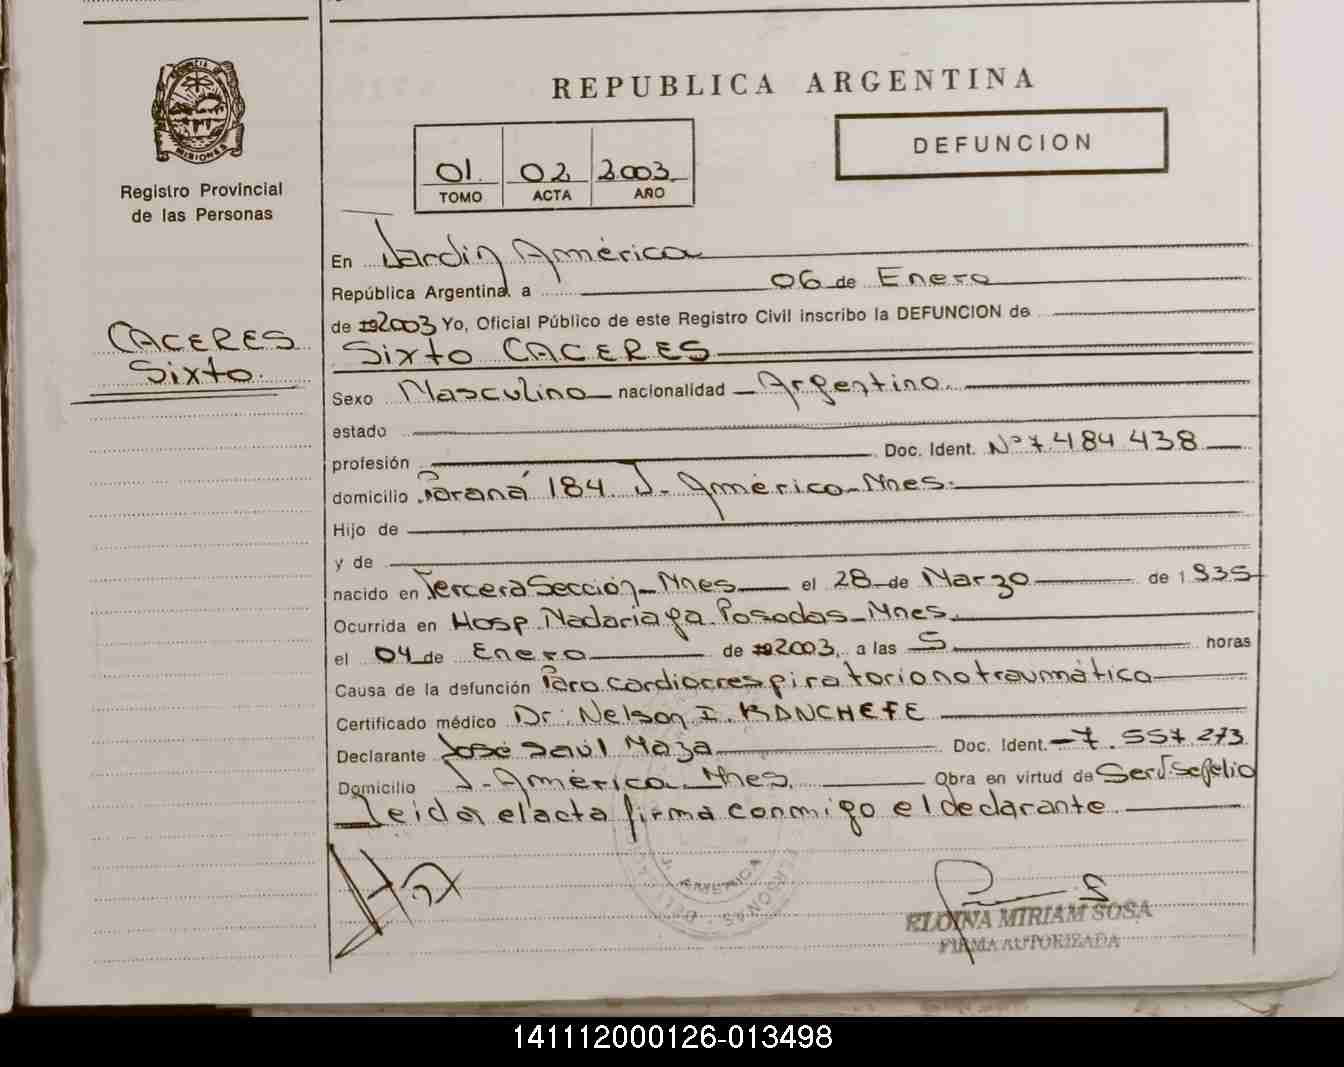 REPUBLICA ARGENTINA
MISIONES
Registro Provincial
de las Personas
01 02 2003
TOMO ACTA AÑO
DEFUNCION
CACERES
Sixto.
En Jardin América
República Argentina a 06 de Enero
de 2003 Yo, Oficial Público de este Registro Civil inscribo la DEFUNCION de
Sixto CACERES
Sexo Masculino nacionalidad Argentino
estado
profesión Doc. Ident. Nº 7.484.438
domicilio Paraná 184 J. América Mnes.
Hijo de
y de
nacido en Tercera Sección Mnes el 28 de Marzo de 1935
Ocurrida en Hosp. Madariaga Posadas Mnes
el 04 de Enero de 2003, a las 5 horas
Causa de la defunción Paro cardiorrespiratorio no traumático
Certificado médico Dr. Nelson I.
Declarante José Saúl Maza Doc. Ident. 7.557.273
Domicilio J. América Mnes Obra en virtud de Serv. Sepelio
Leida el acta firma conmigo el declarante
J. AMERICA
ELOINA MIRIAM SOSA
FIRMA AUTORIZADA
141112000126-013498